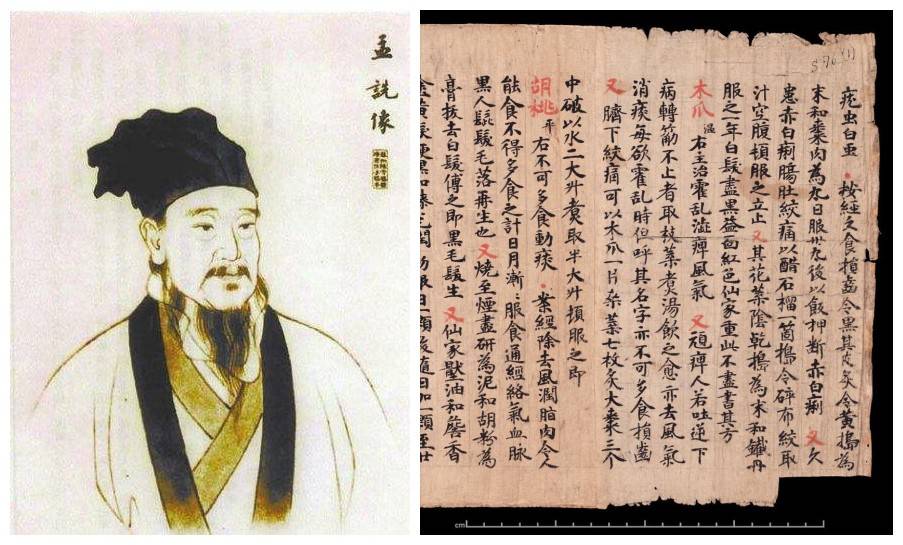 孟詵像
S.76(1)
疣虫白虫·按經久食損齒令黑其皮炙令黃搗為
末和棗肉為丸日服卅丸後以飯押斷赤白痢 又久
患赤白痢腸肚絞痛以醋石榴一箇搗令碎布絞取
汁空腹頓服之立止 又其花葉陰乾搗為末和鐵丹
服之一年白髮盡黑益面紅色仙家重此不盡書其方
木瓜溫 右主治霍乱澁痺風氣 又頑痺人若吐逆下
病轉筋不止者取枝葉煮湯飲之愈亦去風氣
消痰每欲霍乱時但呼其名字亦不可多食損齒
又 臍下絞痛可以木瓜一片桒葉七枚炙大棗三个
中破以水二大升煮取半大升頓服之即
胡桃平 右不可多食動痰·案經除去風潤脂肉令人
能食不得多食之計日月漸〻服食通經絡氣血脉
黑人鬚髮毛落再生也 又燒至煙盡研為泥和胡粉為
膏拔去白髮傅之即黑毛髮生 又仙家壓油和詹香
cm